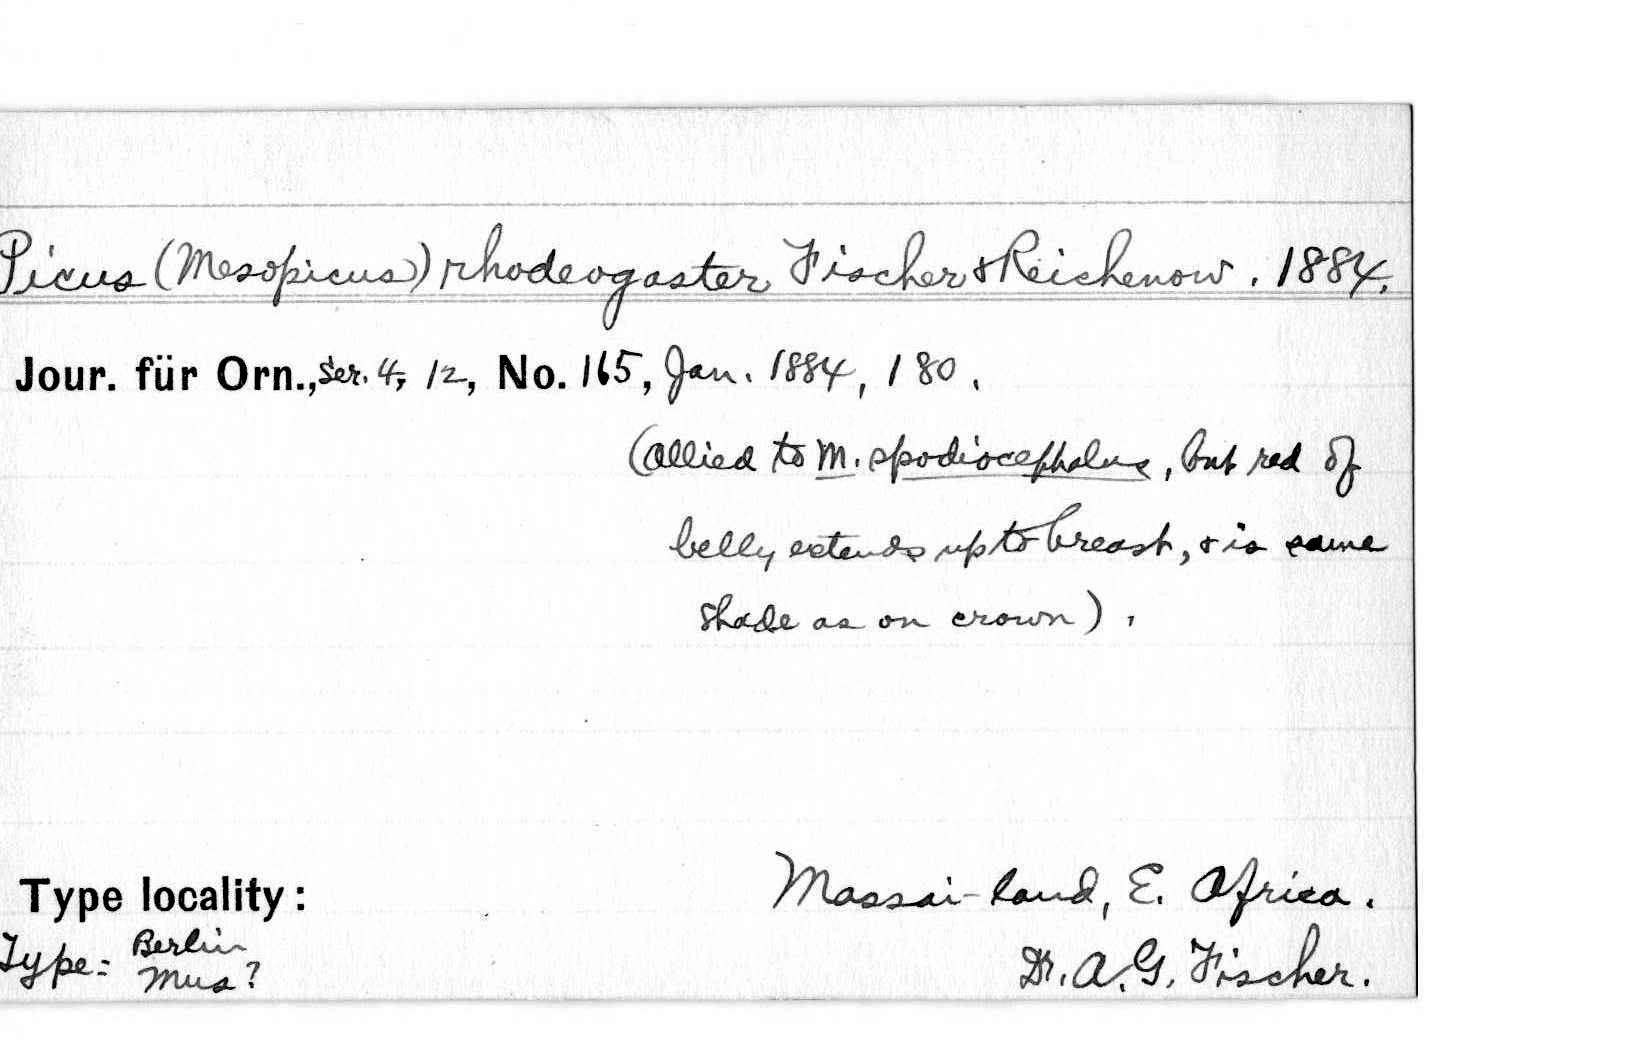 Picus (Mesopicus) rhodeogaster Fischer & Reichenow. 1884.
Jour. für Orn., Ser. 4, 12, No. 165, Jan. 1884, 180.
(Allied to M. spodiocephalus, but red of
belly extends up to breast, & is same
shade as on crown).
Type locality: Massai-land, E. Africa.
Type = Berlin Mus? Dr. A. G. Fischer.